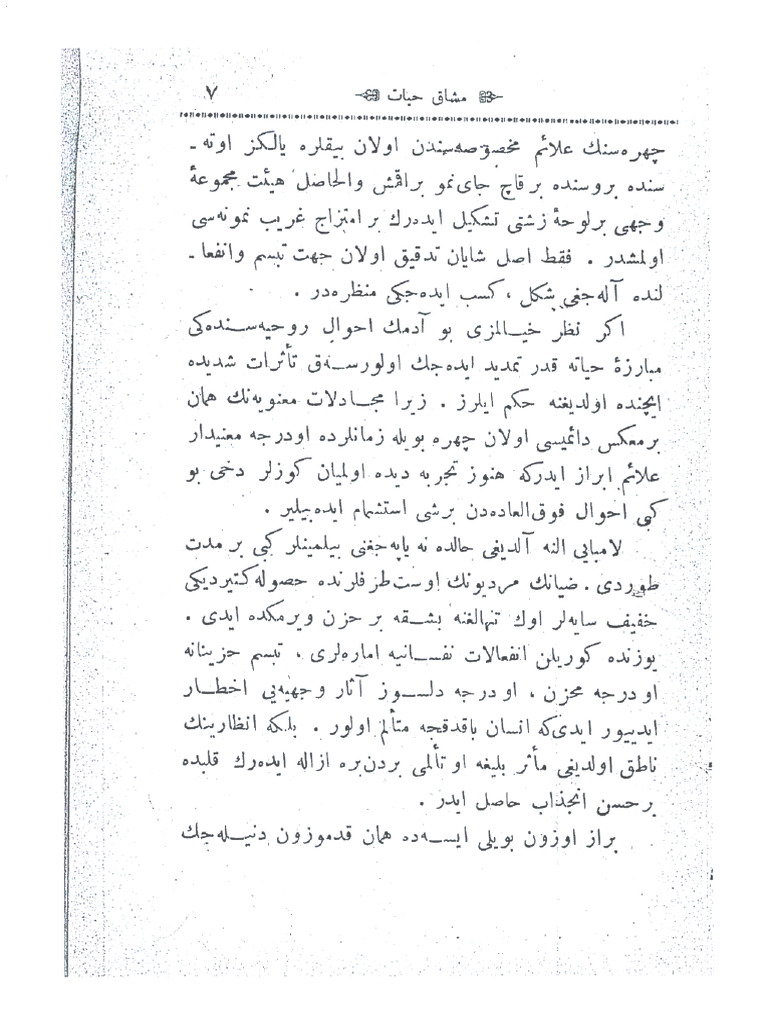 مشاق حیات ٧
چهره‌سنك علائم مخصوصه‌سندن اولان بیقلره یالكز اوته‌ـ
سنده بروسنده برقاچ جای‌نمو براقمش والحاصل هیئت مجموعهٔ
وجهی برلوحهٔ زشتی تشكیل ایده‌رك بر امتزاج غریب نمونه‌سی
اولمشدر . فقط اصل شایان تدقیق اولان جهت تبسم وانفعا‌ـ
لنده آله‌جغی شكل ، كسب ایده‌جكی منظره‌در .
اكر نظر خیـالمزی بو آدمك احوال روحیه‌سـنده‌كی
مبارزهٔ حیاته قدر تمدید ایده‌جك اولورسـه‌ق تأثرات شدیده
ایچنده اولدیغنه حكم ایلرز . زیرا مجـادلات معنویه‌نك همان
برمعكس دائمیسی اولان چهره بویله زمانلرده اودرجه معنیدار
علائم ابراز ایدركه هنوز تجربه دیده اولمیان كوزلر دخی بو
كبی احوال فوق‌العاده‌دن برشی استشمام ایده‌بیلیر .
لامبایی النه آلدیغی حالده نه یاپه‌جغنی بیلمینلر كبی بر مدت
طوردی . ضیانك مردیونك اوست طرفلرنده حصوله كتیردیكی
خفیف سایه‌لر اوك تنهالغنه بشـقه بر حزن ویرمكده ایدی .
یوزنده كوریلن انفعالات نفسـانیه اماره‌لری ، تبسم حزینانه
اودرجه محزن ، اودرجه دلسـوز آثار وجهیه‌یی اخطـار
ایدییور ایدی‌كه انسان باقدقجه متألم اولور . بلكه انظارینك
ناطق اولدیغی مأثر بلیغه او تألمی بردن‌بره ازاله ایده‌رك قلبده
برحسن انجذاب حاصل ایدر .
براز اوزون بویلی ایسـه‌ده همان قدموزون دنیـله‌جك